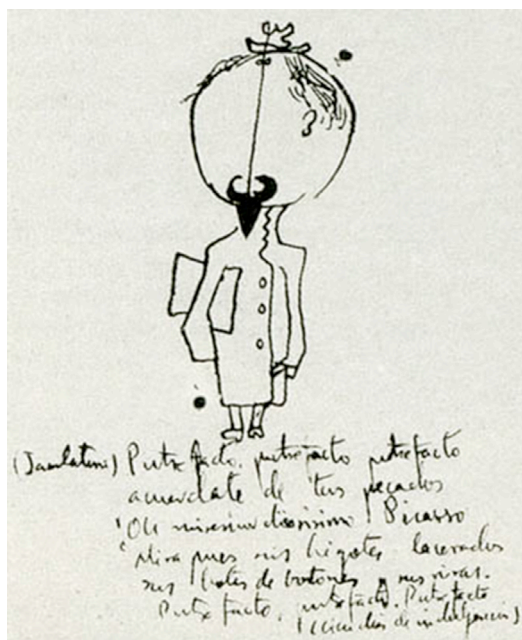 (Jaculatoria) Putrefacto, putrefacto putrefacto
acuerdate de tus pecados
¡Oh diosísimo Picasso
Mira pues sus bigotes lacerados
sus botas de botones y sus rivas.
Putrefacto, putrefacto, Putrefacto
(cien dias de indulgencia)